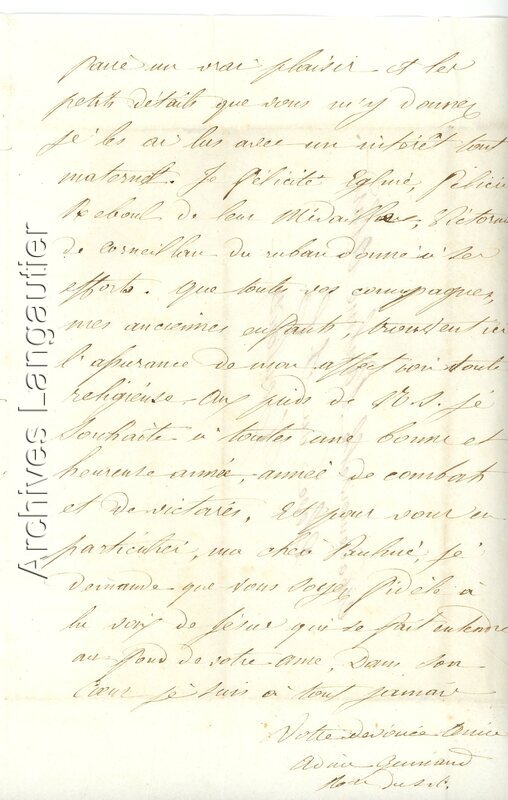 un vrai plaisir et les
petits détails que vous m'y donnez
je les ai lus avec un intérêt tout
maternel. Je félicite Eglné, Félicie
Reboul de leur Médailles, Victorine
de Corneillan du ruban donné à ses
efforts. Que toutes vos compagnes,
mes anciennes enfants, trouvent ici
l'assurance de mon affection toute
religieuse. Aux pieds de N. S. je
souhaite à toutes une bonne et
heureuse année, année de combats
et de victoires. Et pour vous en
particulier, ma chère Pauline, je
demande que vous soyez fidèle à
la voix de Jésus qui se fait entendre
au fond de votre ame. Dans son
Cœur je suis à tout jamais
Votre dévouée Amie
du S. C.
Archives Langautier